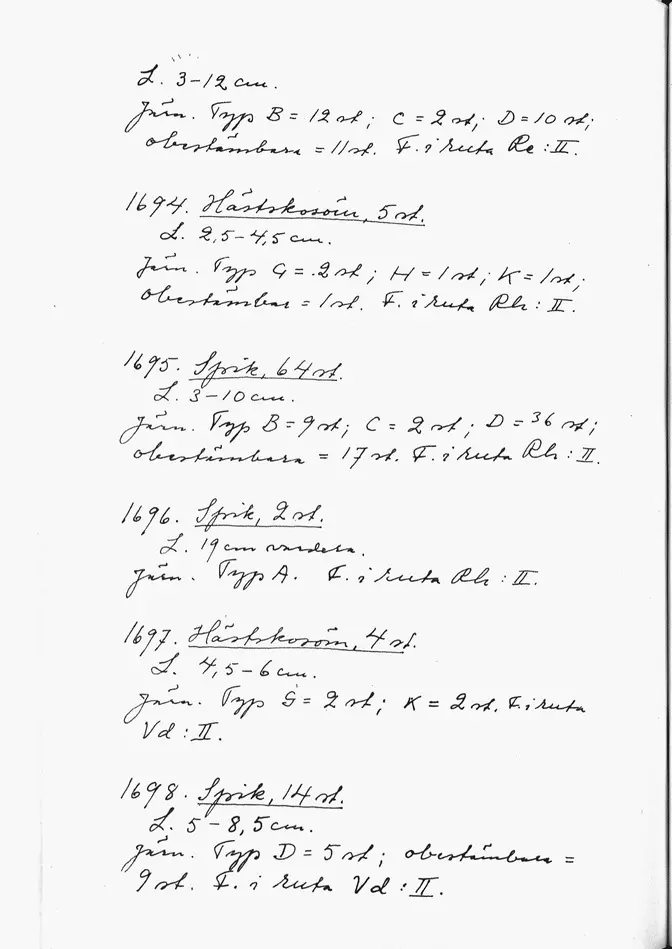 L. 3-12 cm.
Järn. Typ B = 12 st; C = 2 st; D = 10 st;
obestämbara = 11 st. F. i ruta Re : II.
1694. Hästskosöm, 5 st.
L. 2,5-4,5 cm.
Järn. Typ G = 2 st; H = 1 st; K = 1 st;
obestämbar = 1 st. F. i ruta Rh : II.
1695. Spik, 64 st.
L. 3-10 cm.
Järn. Typ B = 9 st; C = 2 st; D = 36 st;
obestämbara = 17 st. F. i ruta Rh : II.
1696. Spik, 2 st.
L. 19 cm vardera.
Järn. Typ A. F. i ruta Rh : II.
1697. Hästskosöm, 4 st.
L. 4,5-6 cm.
Järn. Typ G = 2 st; K = 2 st. F. i ruta
Vd : II.
1698. Spik, 14 st.
L. 5-8,5 cm.
Järn. Typ D = 5 st; obestämbara =
9 st. F. i ruta Vd : II.